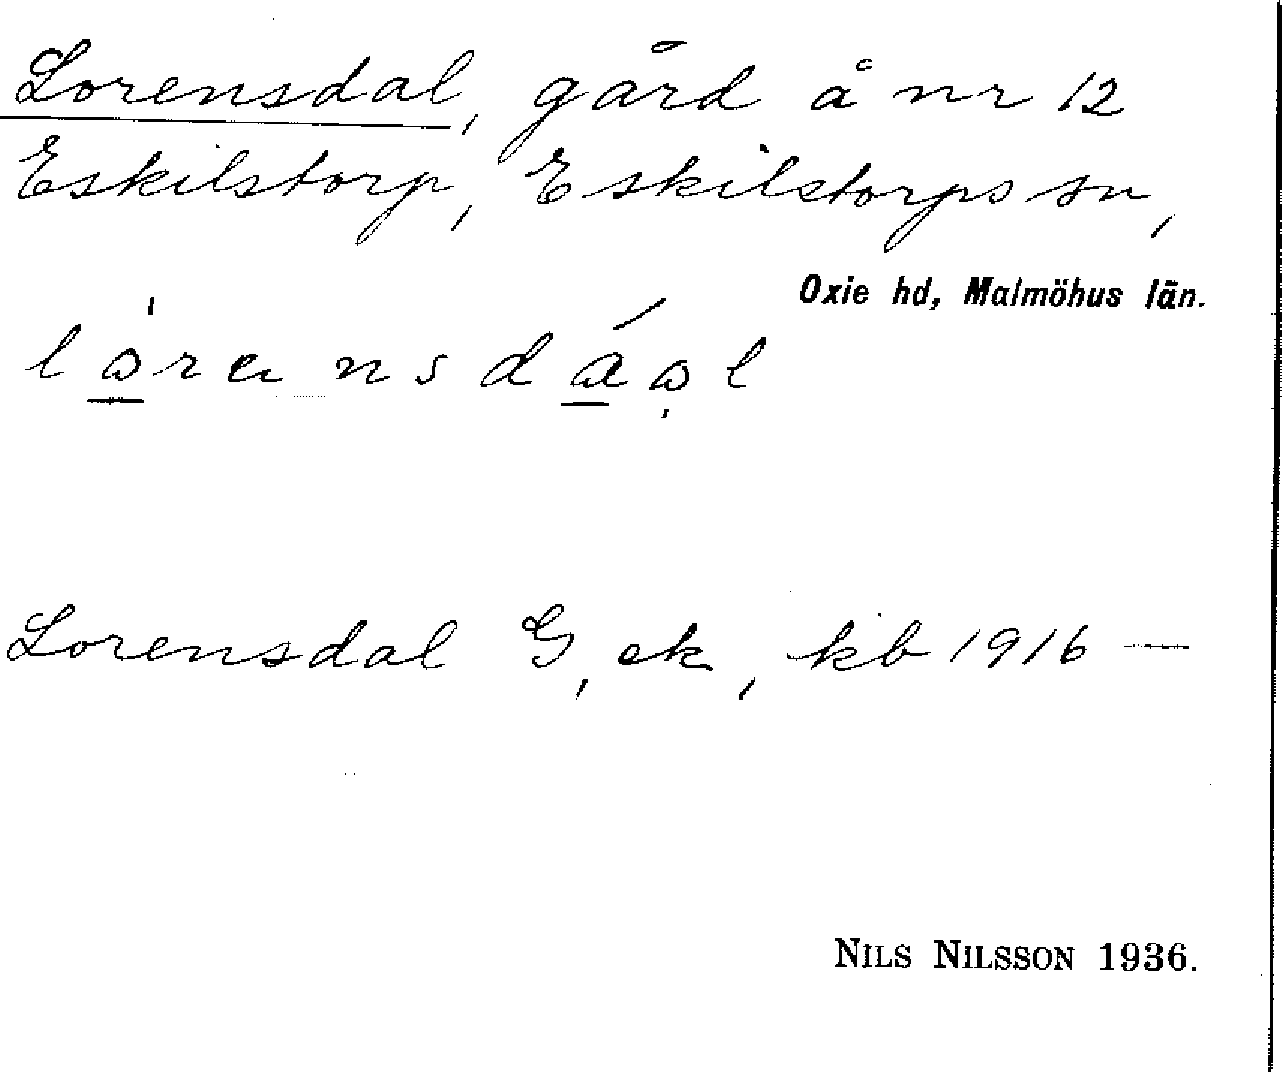 Lorensdal, gård å nr 12
Eskilstorp, Eskilstorps sn,
Oxie hd, Malmöhus län.
Lorensdal G, ek, kb 1916 —
NILS NILSSON 1936.